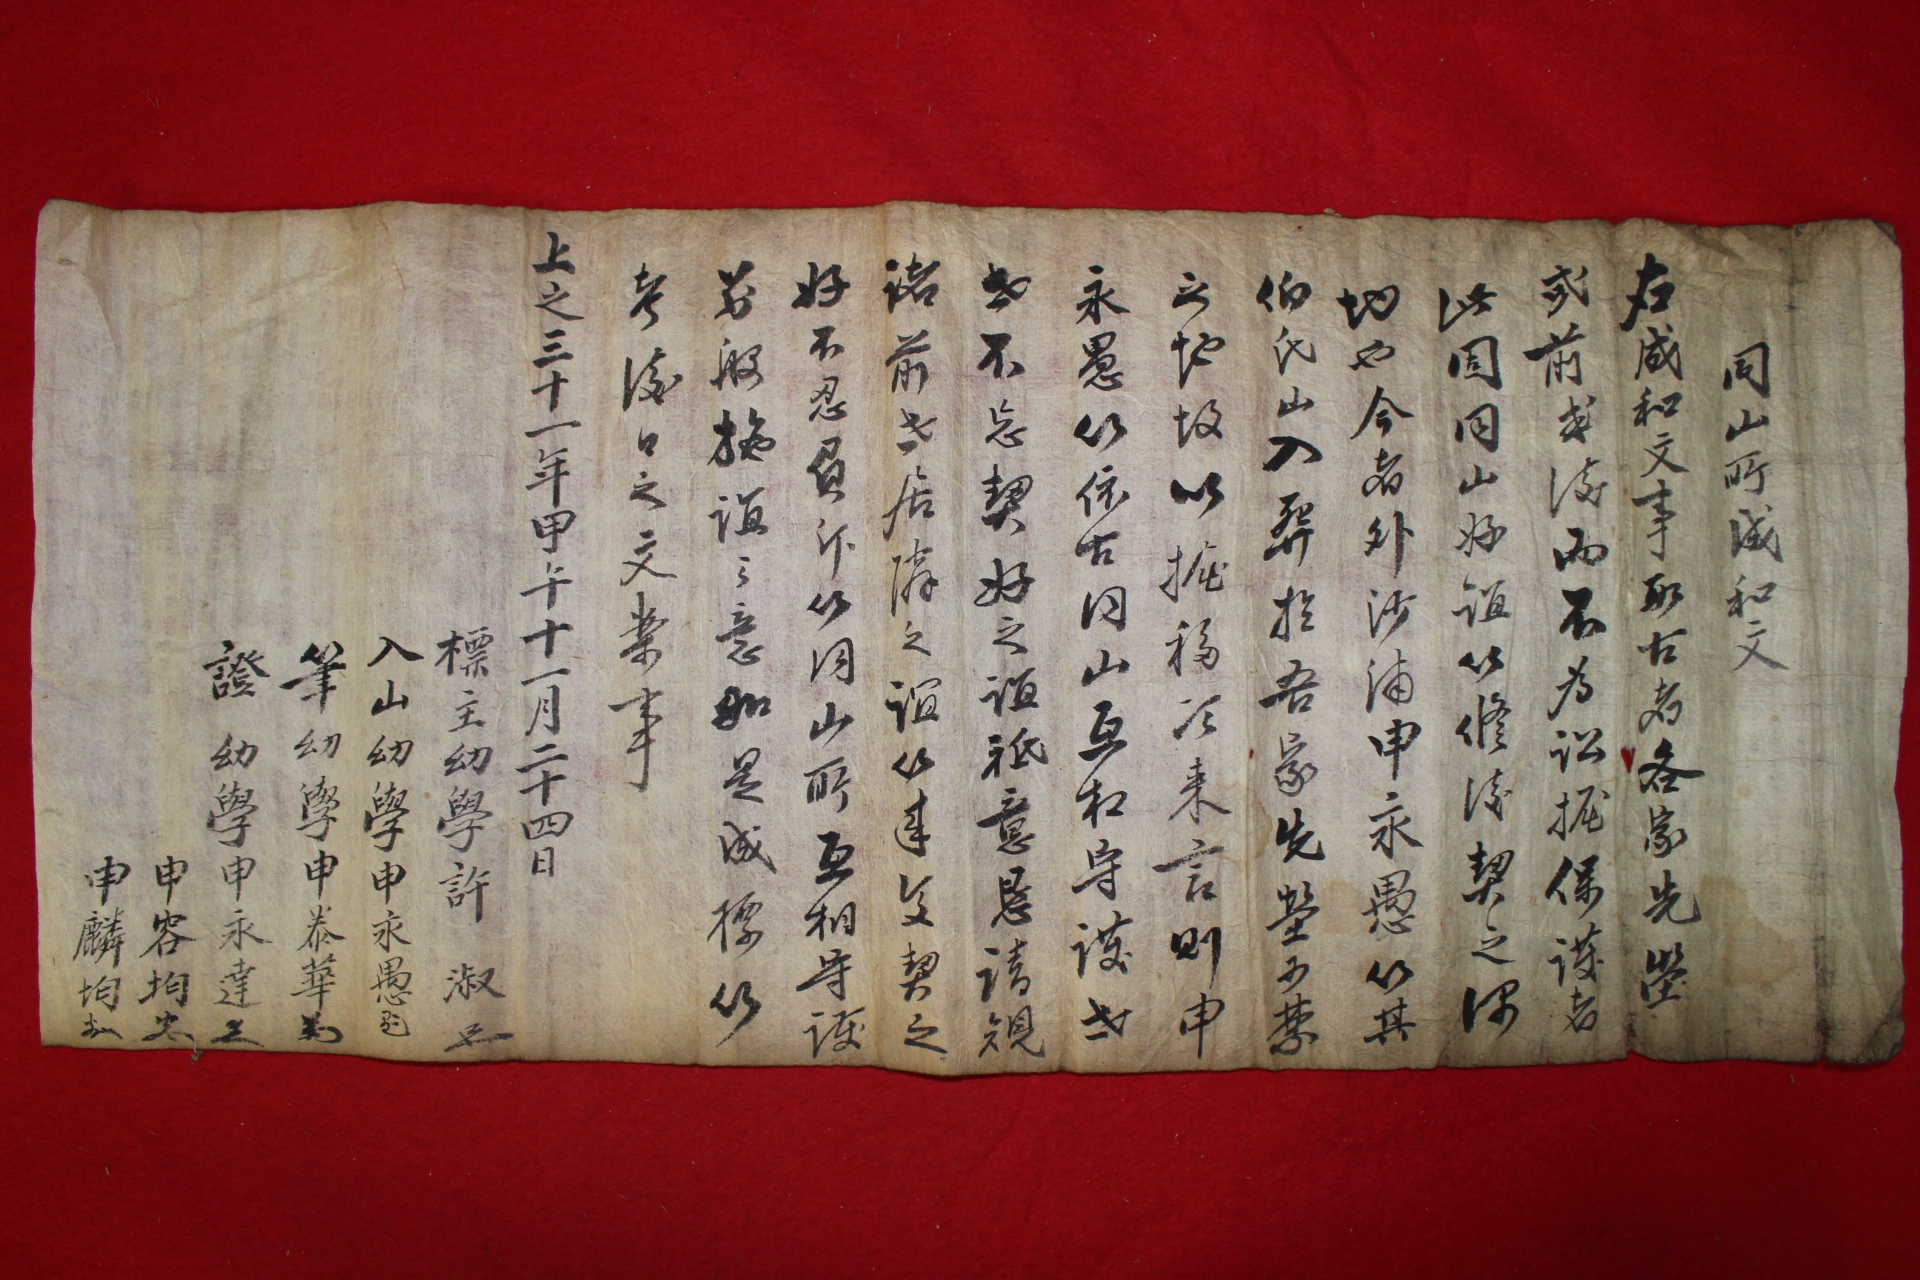 同山所成和文
右成和文事段古者各家先塋
或前或後而不為訟掘保護者
此因同山好誼以修後契之深
切也今者外沙浦申永愚以其
伯氏山入葬於吾家先塋可禁
之地故以掘移次来言則申
永愚以依古同山互相守護世
世不忘契好之誼祗意恳請視
諸前世居隣之誼以年交契之
好不忍負斥以同山所互相守護
前般拖誼之意如是成標以
考後日之文券事
上之三十一年甲午十一月二十四日
標主幼學許淑
入山幼學申永愚
筆幼學申泰華
證幼學申永達
申容均
申麟均